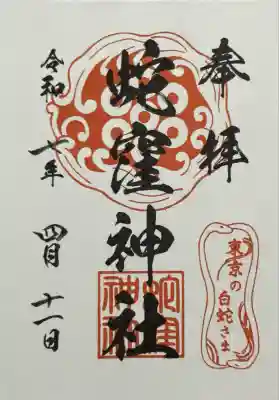 奉拝
蛇窪神社
令和七年
四月十一日
東京の
白蛇さま
蛇窪
神社